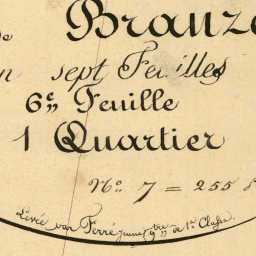 de
Branze
n sept Feuilles
6e Feuille
1 Quartier
No. 7 = 255
Levée par Ferré jeune de 1re Classe